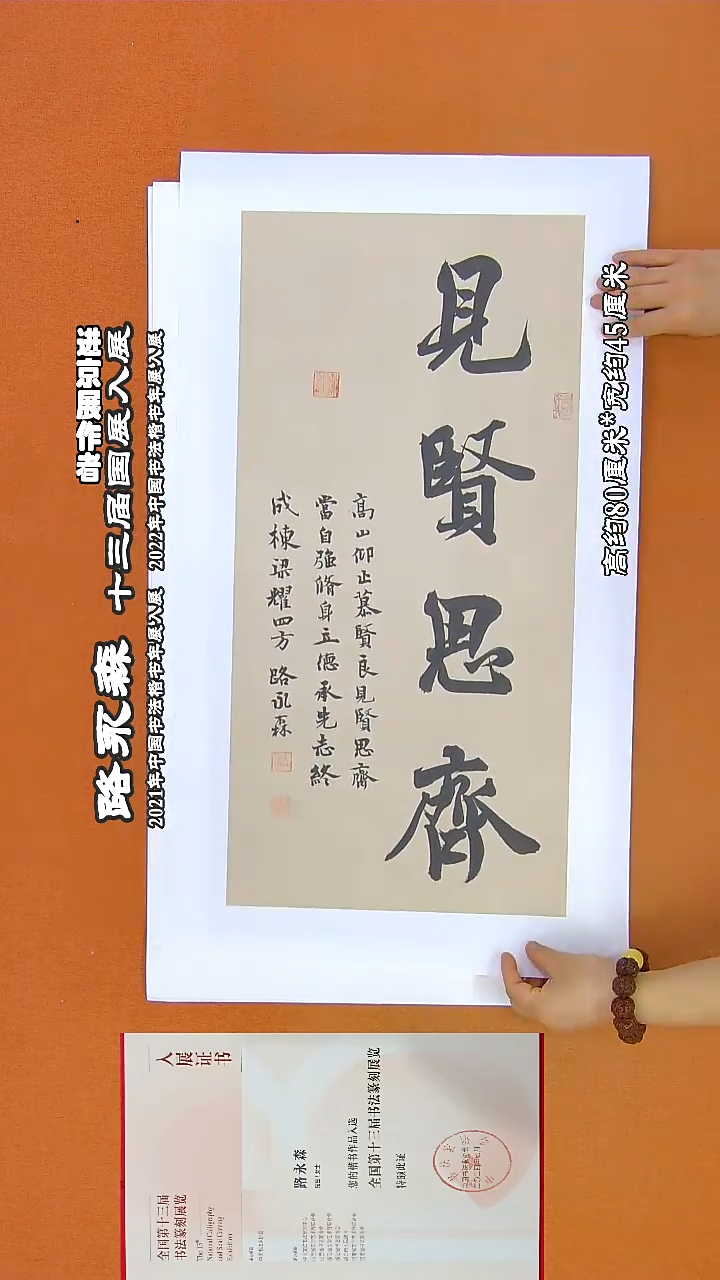 見賢思齊
高山仰止慕賢良見賢思齊
當自強脩身立德承先志終
成棟梁耀四方 路永森
路永森 十三届国展入展
2021年中国书法楷书年展入展 2022年中国书法楷书年展入展
高约80厘米*宽约45厘米
全国第十三届
书法篆刻展览
The 13th
National Calligraphy
and Seal Carving
Exhibition
入展证书
路永森
您的楷书作品入选
全国第十三届书法篆刻展览
特颁此证